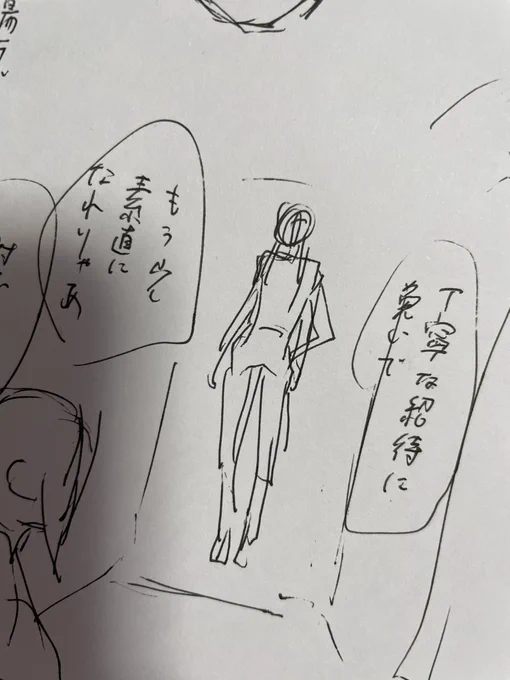 丁寧な紹待に
免じて
もう少し
素直に
なれりゃあ